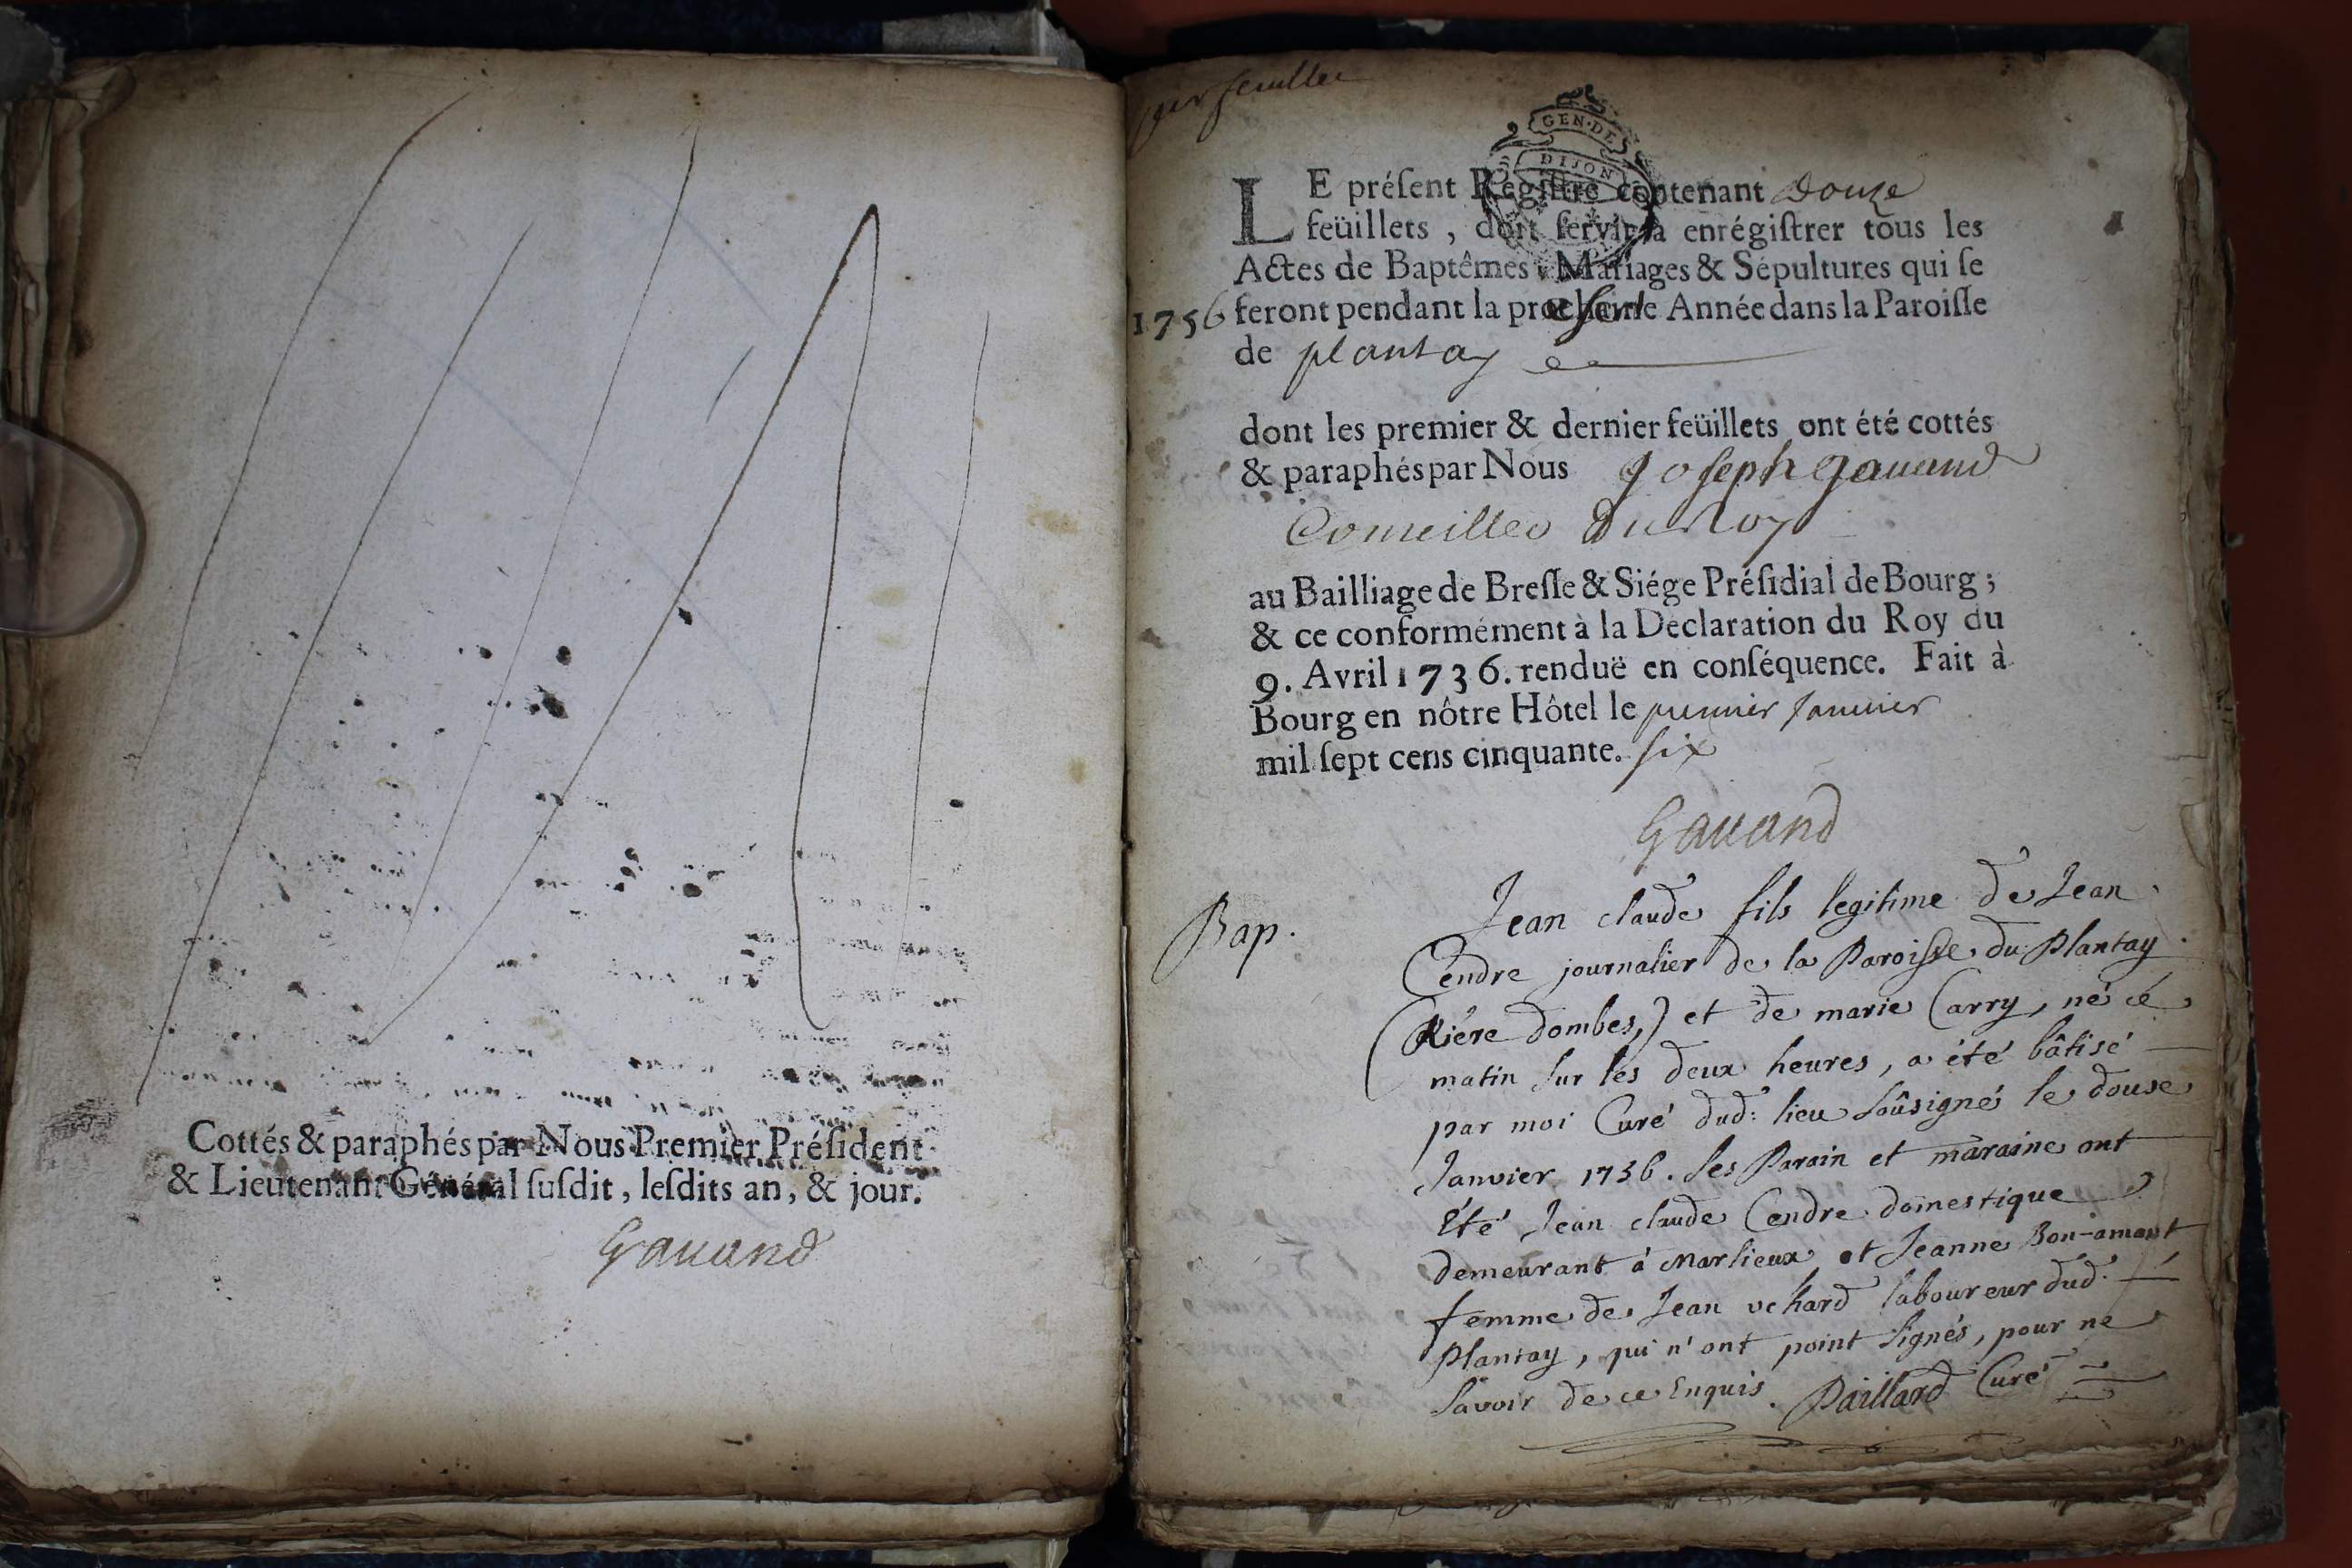 Cottés & paraphés par Nous Premier Préſident
& Lieutenant Général ſuſdit, leſdits an, & jour.
Gauand
per feuillet
GEN·DE
DIJON
LE préſent Regiſtre contenant Douze
feüillets, doit ſervir à enrégiſtrer tous les
Actes de Baptêmes, Mariages & Sépultures qui ſe
1756 feront pendant la preſent Année dans la Paroiſſe
de plantay
dont les premier & dernier feüillets ont été cottés
& paraphés par Nous Joſeph Gauand
Conseiller du Roy
au Bailliage de Breſſe & Siége Préſidial de Bourg ;
& ce conformément à la Déclaration du Roy du
9. Avril 1736. renduë en conſéquence. Fait à
Bourg en nôtre Hôtel le premier Januier
mil ſept cens cinquante. ſix
Gauand
Bap.
Jean claude fils legitime de Jean
Cendre journalier de la Paroisse du Plantay
(Riére Dombes,) et de marie Carry, né cé
matin sur lés deux heures, a été bâtisé
par moi Curé dud: lieu soûsigné le douse
Janvier 1756. les Parain et maraine ont
été Jean claude Cendre domestique
demeurant à Marlieux et Jeanne Bon-amant
femme de Jean uchard laboureur dud.
Plantay, qui n'ont point signés, pour ne
savoir de ce Enquis. Paillard Curé